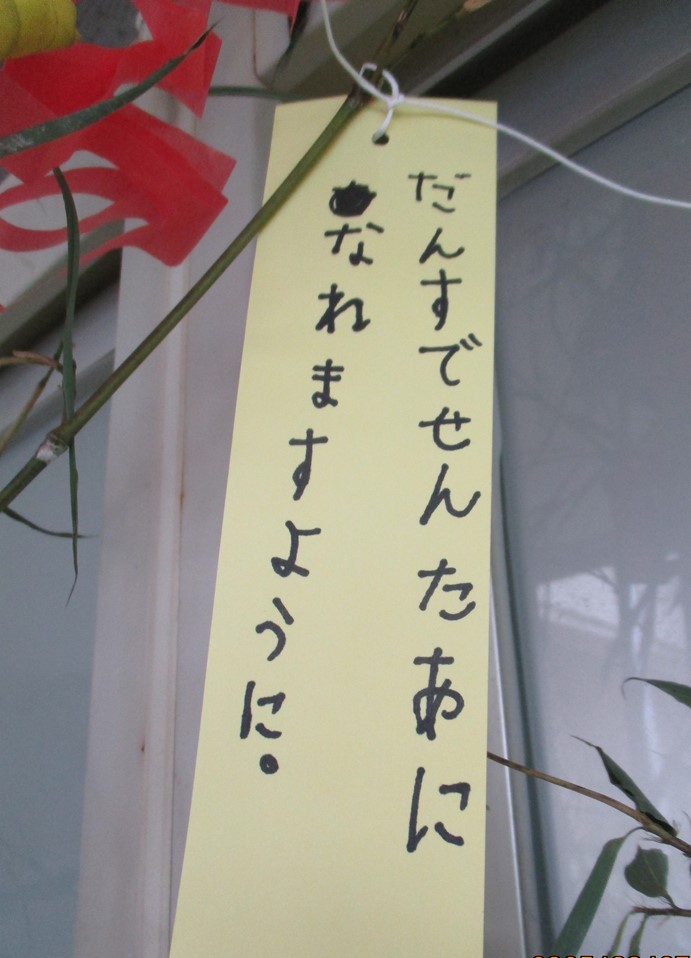 だんすでせんたあに
なれますように。